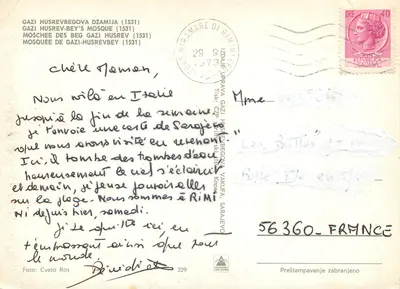 GAZI HUSREVBEGOVA DŽAMIJA (1531)
GAZI HUSREV-BEY'S MOSQUE (1531)
MOSCHEE DES BEG GAZI HUSREV (1531)
MOSQUEE DE GAZI-HUSREVBEY (1531)
Chère Maman,
Nous voilà en Italie
jusqu'à la fin de la semaine
je t'envoie une carte de Sarajevo
que nous avons visité en venant.
Ici, il tombe des trombes d'eau
heureusement le ciel s'éclaircit
et demain, je pense pouvoir aller
sur la plage. Nous sommes à RIMI
NI depuis hier, samedi.
Je te quitte ici en
t'embrassant ainsi que tout
le monde.
Bénédicte
Foto: Cveto Ros
329
MIRAMARE DI RIMINI
29. 9
1973
40
Mme
56360-FRANCE
Preštampavanje zabranjeno